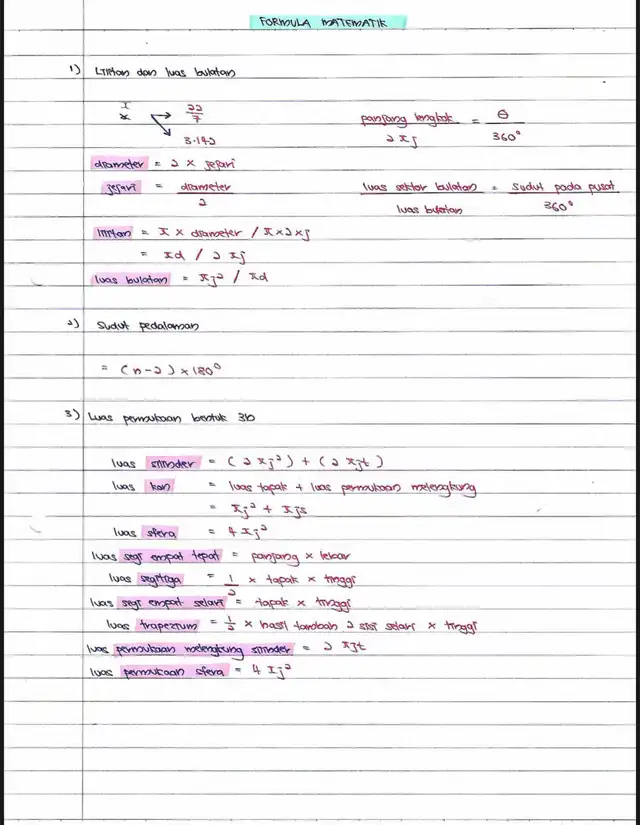 FORMULA MATEMATIK
1) Lilitan dan luas bulatan
π → 22/7
3.142
panjang lengkok / 2πj = θ / 360°
diameter = 2 × jejari
jejari = diameter / 2
luas sektor bulatan / luas bulatan = sudut pada pusat / 360°
lilitan = π × diameter / π×2×j
= πd / 2πj
luas bulatan = πj² / πd
2) Sudut pedalaman
= (n-2) × 180°
3) Luas permukaan bentuk 3D
luas silinder = (2πj²) + (2πjt)
luas kon = luas tapak + luas permukaan melengkung
= πj² + πjs
luas sfera = 4πj²
luas segi empat tepat = panjang × lebar
luas segitiga = 1/2 × tapak × tinggi
luas segi empat selari = tapak × tinggi
luas trapezium = 1/2 × hasil tambah 2 sisi selari × tinggi
luas permukaan melengkung silinder = 2πjt
luas permukaan sfera = 4πj²